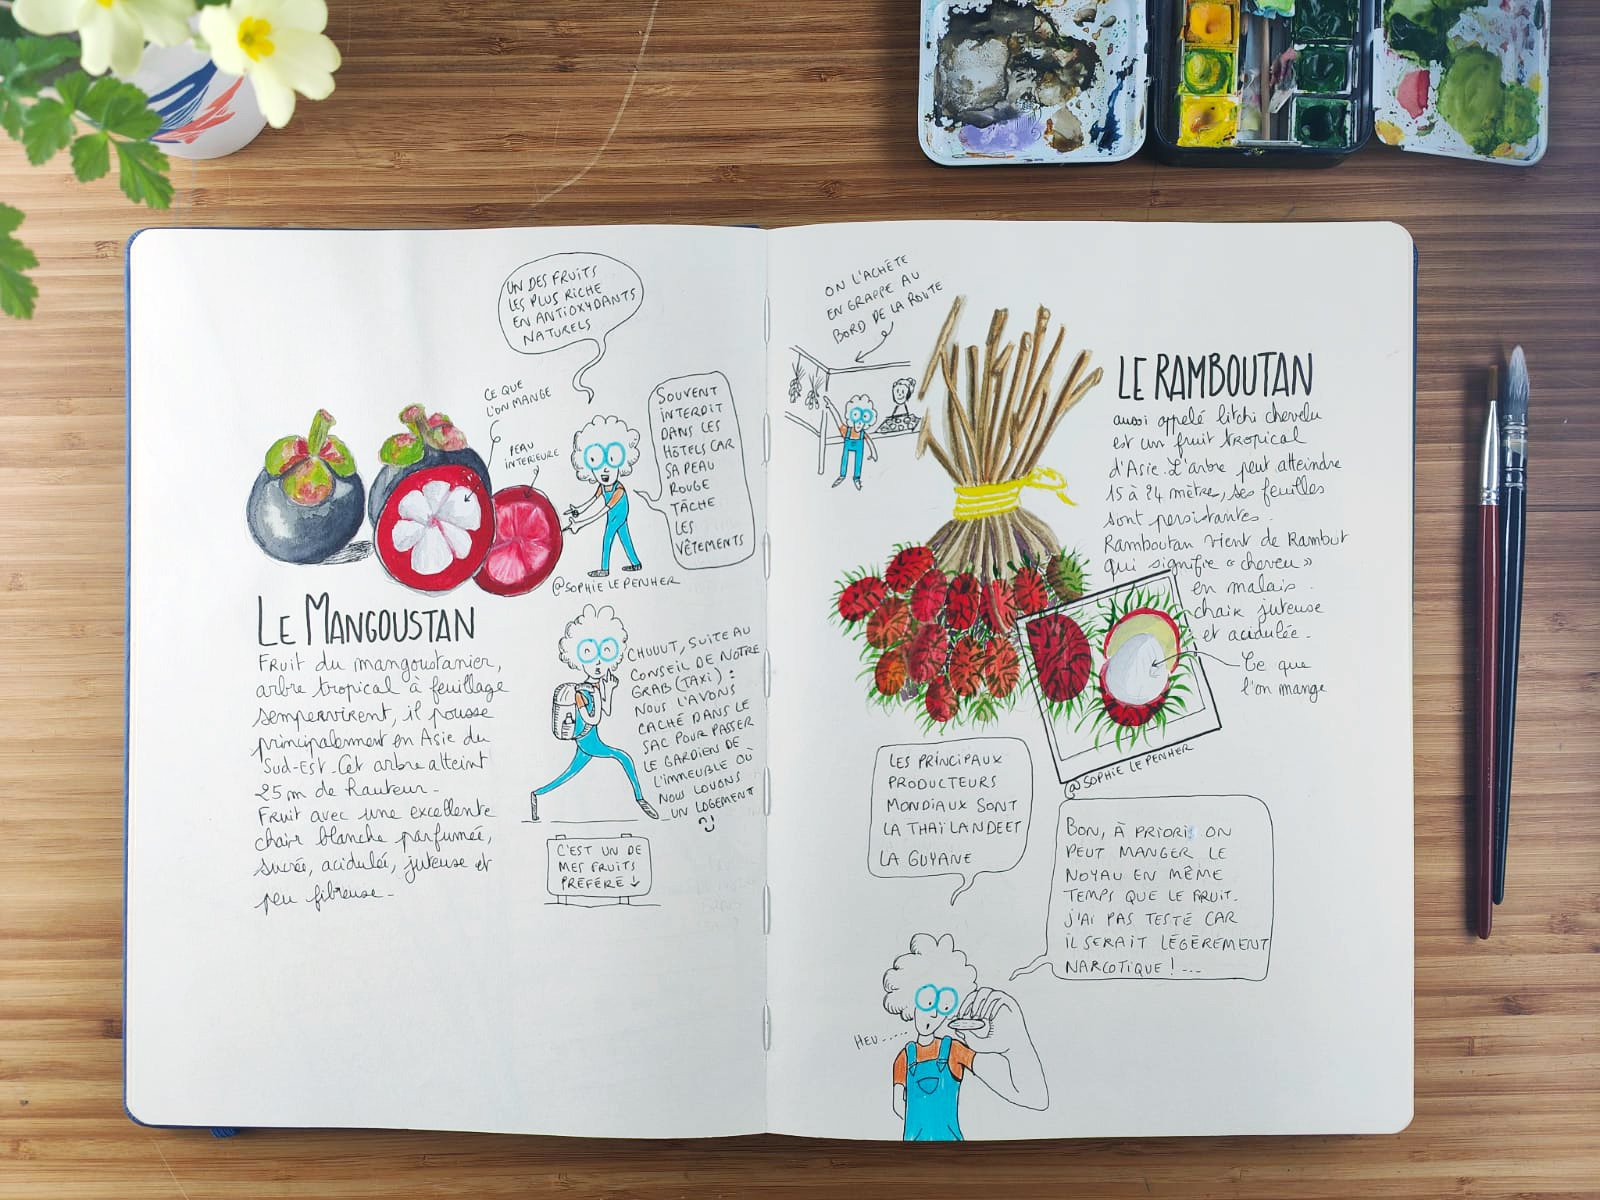 UN DES FRUITS
LES PLUS RICHE
EN ANTIOXYDANTS
NATURELS
CE QUE
L'ON MANGE
PEAU
INTERIEURE
SOUVENT
INTERDIT
DANS LES
HÔTELS CAR
SA PEAU
ROUGE
TÂCHE
LES
VÊTEMENTS
@SOPHIE LE PENHER
LE MANGOUSTAN
Fruit du mangoustanier,
arbre tropical à feuillage
sempervirent, il pousse
principalement en Asie du
Sud-Est. Cet arbre atteint
25 m de hauteur.
Fruit avec une excellente
chair blanche parfumée,
sucrée, acidulée, juteuse et
peu fibreuse.
CHUUUT, SUITE AU
CONSEIL DE NOTRE
GRAB (TAXI) :
NOUS L'AVONS
CACHÉ DANS LE
SAC POUR PASSER
LE GARDIEN DE
L'IMMEUBLE OÙ
NOUS LOUONS
UN LOGEMENT
C'EST UN DE
MES FRUITS
PRÉFÉRÉ ↓
ON L'ACHÈTE
EN GRAPPE AU
BORD DE LA ROUTE
LE RAMBOUTAN
aussi appelé litchi chevelu
est un fruit tropical
d'Asie. L'arbre peut atteindre
15 à 24 mètres, ses feuilles
sont persistantes.
Ramboutan vient de Rambut
qui signifie « cheveu »
en malais.
chair juteuse
et acidulée.
Ce que
l'on mange
@SOPHIE LE PENHER
LES PRINCIPAUX
PRODUCTEURS
MONDIAUX SONT
LA THAÏLANDE ET
LA GUYANE
BON, À PRIORI ON
PEUT MANGER LE
NOYAU EN MÊME
TEMPS QUE LE FRUIT.
J'AI PAS TESTÉ CAR
IL SERAIT LÉGÈREMENT
NARCOTIQUE !...
HEU.....